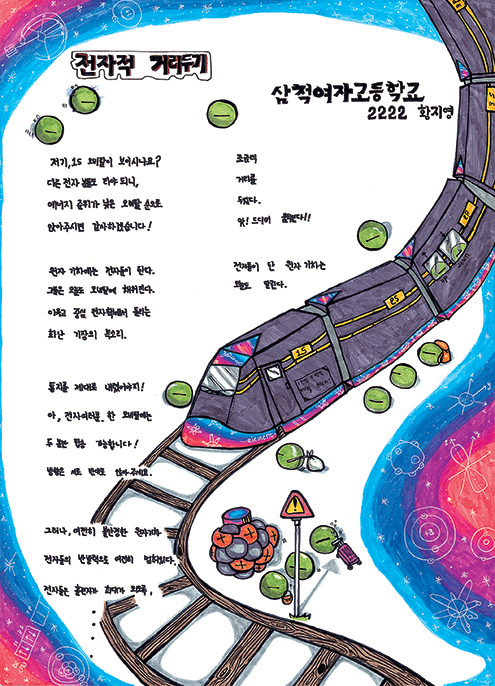 전자적 거리두기
삼척여자고등학교
2222 황지영
저기, 1S 오비탈이 보이시나요?
다른 전자 분들도 타야 되니,
에너지 준위가 낮은 오비탈 순으로
앉아주시면 감사하겠습니다!
원자 기차에는 전자들이 탄다.
그들은 오늘도 오비탈에 채워진다.
이윽고 중심 원자핵에서 들리는
회산 기장의 목소리.
동지를 제대로 내렸어야지!
아, 전자여러분. 한 오비탈에는
두 분만 탑승 가능합니다!
방향은 서로 반대로 앉아주세요.
그러나, 여전히 불안정한 원자기차
전자들의 반발력으로 여전히 덜컹인다.
전자들은 홀전자가 최대가 되도록,
조금씩
거리를
두었다.
앗! 드디어
전자들이 탄 원자 기차는
오늘도 달린다.
1S
2S
2P